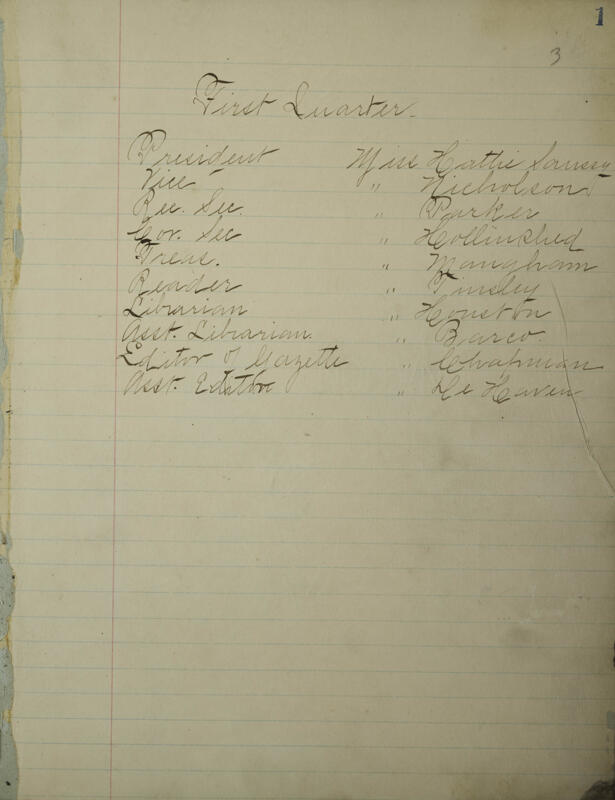 1
3
First Quarter.
President Miss Hattie Saussy
Vice " " Nicholson
Rec. Sec. " Parker
Cor. Sec " Hollinshed
Treas. " Mangham
Reader " Tinsley
Librarian " Houston
Asst. Librarian. " Barco.
Editor of Gazette " Chapman
Asst. Editor " De Haven